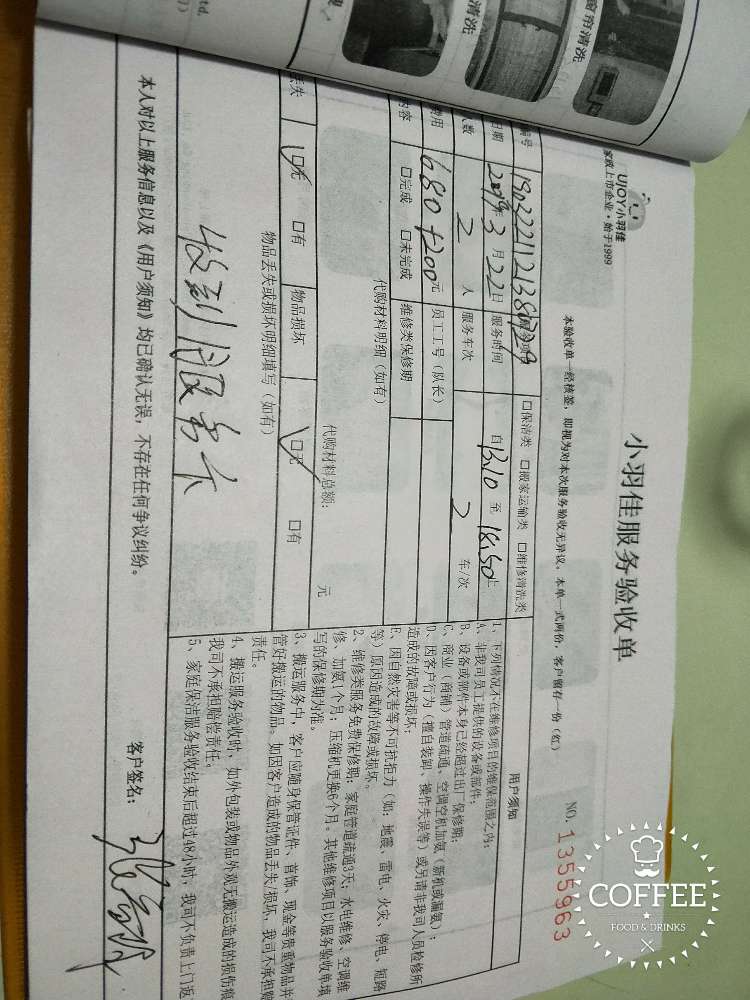 td.
清洗
窗帘清洗
UJOY小羽佳
家政上市企业·始于1999
小羽佳服务验收单
NO. 1355963
本验收单一经核签，即视为对本次服务验收无异议。本单一式两份，客户留存一份（红）
编号
口保洁类 口搬家运输类 口维修清洗类
日期 2019年3月22日 服务时间 自13:10至18:50止
人数 2人 服务车次 2 车/次
费用 680+200元 员工工号（队长）
内容 口完成 口未完成 维修类保修期
代购材料明细（如有）
代购材料总额： 元
丢失 口无 口有 物品损坏 口无 口有
物品丢失或损坏明细填写（如有）
收到
用户须知
1、下列情况不在维修项目的维保范围之内：
A、非我司员工提供的设备或部件；
B、设备或部件本身已经超过出厂保修期；
C、商业（商铺）管道疏通、空调空机加氨（新机或漏氨）；
D、因客户行为（擅自装卸、操作失误等）或另请非我司人员检修所
造成的故障或损坏；
E、因自然灾害等不可抗拒力（如：地震、雷电、火灾、停电、短路
等）原因造成的故障或损坏。
2、维修类服务免费保修期：家庭管道疏通3天；水电维修、空调维
修、加氨1个月；压缩机更换6个月。其他维修项目以服务验收单填
写的保修期为准。
3、搬运服务中，客户应随身保管证件、首饰、现金等贵重物品并
管好搬运的物品。如因客户造成的物品丢失/损坏，我司不承担赔
责任。
4、搬运服务验收时，如外包装或物品外观无搬运造成的损伤痕
我司不承担赔偿责任。
5、家庭保洁服务验收结束后超过48小时，我司不负责上门返
本人对以上服务信息以及《用户须知》均已确认无误，不存在任何争议纠纷。
客户签名：
COFFEE
FOOD & DRINKS